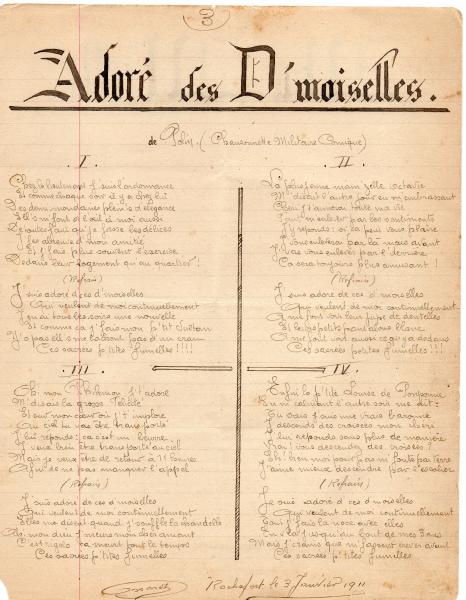 3
Adoré des D'moiselles.
de Polin. (Chansonnette Militaire Comique)
I
Chez le lieutenant j'suis l'ordonnance
Et comme chaque soir il y a chez lui
Des dem' mondaines plein's d'élégance
Ell's m'font d'l'œil à moi aussi
De toutes faut qu'je fasse les délices
d'moi amitié
Et j'fais plus souvent l'exercice
Dedans leur logement qu'au quartier !
(Refrain)
J'suis adoré d'ces d'moiselles
Qui veulent de moi continuellement
J'en ai tous les soirs une nouvelle
Et comme ça j'fais mon p'tit Sultan
N'y a pas ell's me laissent pas d'un cran
Ces sacrées p'tites femelles !!!!
II
La plus jeune mam'zelle Octavie
M'disait l'autre jour en m'embrassant
Pour t'aimer toute ma vie
Faut m'enl'ver par les sentiments
J'y réponds : si ça peut vous plaire
J'vous enlèverai par là mais avant
J'vais vous enlever par l'derrière
Ça sera toujours plus amusant !
(Refrain)
J'suis adoré de ces d'moiselles
Qui veulent de moi continuellement
A me font voir leurs jupes de dentelles
Et les petits pantalons blancs
A me font voir aussi ce qu'y a dedans
Ces sacrées petites femelles !!!
III
Ah ! mon j't'adore
M'disait la grosse
Et sur mon cœur oui j't'implore
Au ciel tu vas être transporté
J'lui réponds : ça c'est un beurre
J'veux bien être transporté au ciel
Mais je veux être de retour à 11 heures
Afin de ne pas manquer l'appel
(Refrain)
J'suis adoré de ces d'moiselles
Qui veulent de moi continuellement
Elles me disent quand j'souffle la chandelle
Ah mon dieu j'meurs mon cher amant
C'est rigolo ça meurt tout le temps
Ces sacrées p'tites femelles
IV
Enfin la p'tite Louise de
En me l'autre soir me dit :
Tu sais j'suis une vraie baronne
J'descends des croisées mon chéri
J'lui réponds sans plus de manière
Quoi ! vous descendez des croisés ?
Eh ! bien moi pour pas m'foute par terre
J'aime mieux descendre par l'escalier
(Refrain)
Je suis adoré d'ces d'moiselles
Qui veulent de moi continuellement
Moi j'fais la noce avec elles
J'en ai jusqu'au bout de mes bras
Mais j'crains que m'fassent crever avant
Ces sacrées p'tites femelles
Rochefort le 3 Janvier 1911